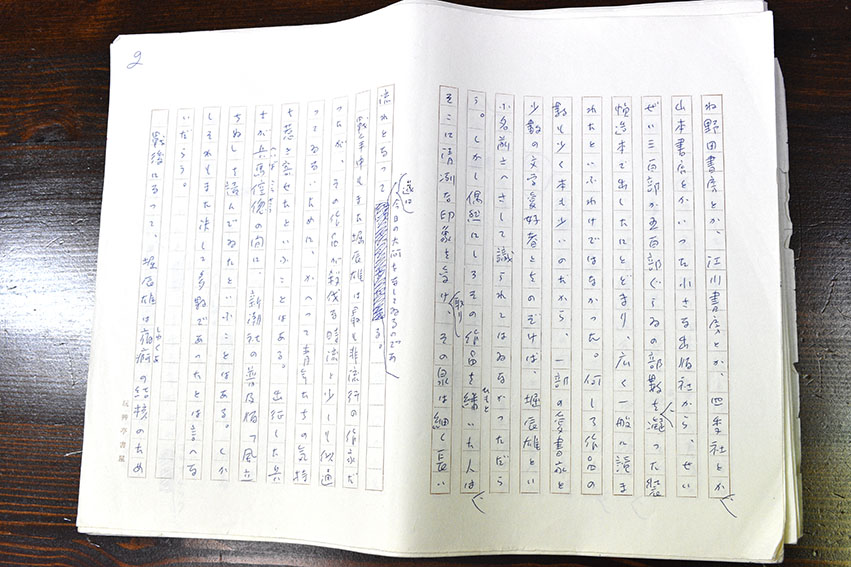 ね野田書房とか、江川書房とか、四季社とか
山本書店とかいった小さな出版社から、せい
ぜい三百部か五百部ぐらゐの部数を凝った装
幀造本で出したにとどまり、広く一般に読ま
れたといふわけではなかった。何しろ作品の
数も少く本も少いのだから、一部の愛書家と
少数の文学愛好者とをのぞけば、堀辰雄とい
ふ名前さへさして識られてはゐなかっただら
う。しかし偶然にしろその作品を繙いた人は
ひもと
そこに清冽な印象を受け、その泉は細く長い
取り
流れとなって
遂に
今日の大河を成してゐるのであ
る。
戦争中もまた堀辰雄は最も非流行の作家だ
ったが、その作品が殺伐な時流と少しも似通
ってゐないために、かへって青年たちの気持
を惹き寄せたといふことはある。出征した兵
さが兵馬倥偬の間に、新潮社の普及版で「風立
へいばこうそう
ちぬ」を読んでゐたといふことはある。しか
しそれもまた決して多数であったとは言へな
いだらう。
戦後になって、堀辰雄は宿痾の結核のため
しゅくあ
2
玩艸亭書屋